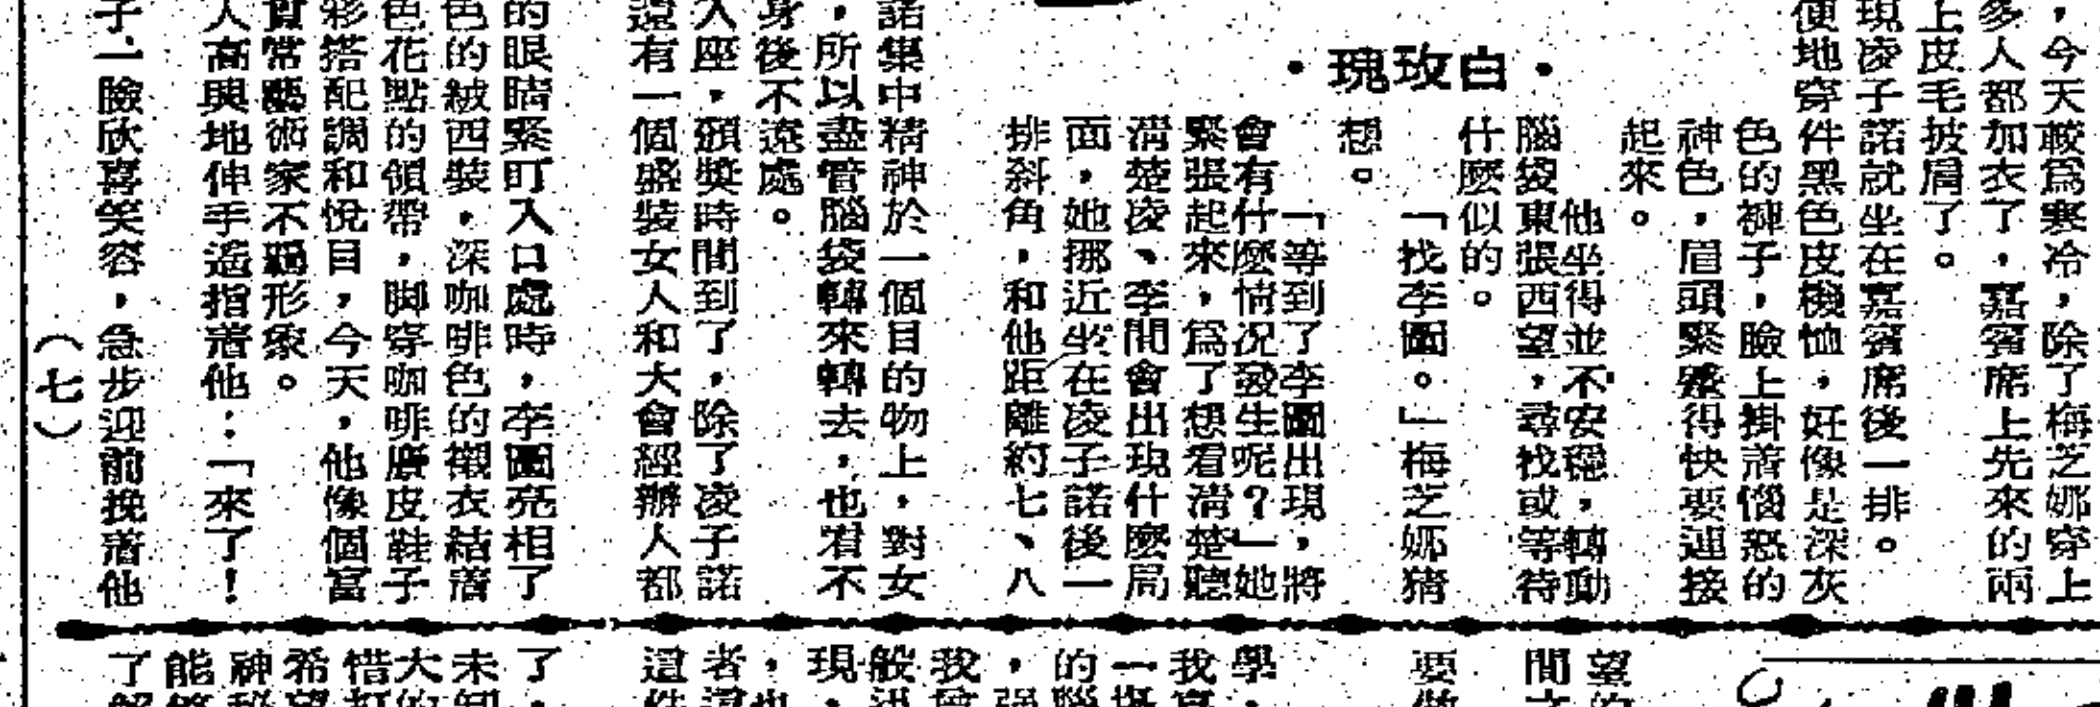 ，今天較爲寒冷，除了梅芝娜穿上
多人都加衣了，嘉賓席上先來的兩
上皮毛披肩了。
現凌子諾就坐在嘉賓席後一排。
便地穿件黑色皮機恤，好像是深灰
色的褲子，臉上掛著惱怒的
神色，眉頭緊蹙得快要連接
起來。
他坐得並不安穩，轉動
腦袋東張西望，尋找或等待
什麼似的。
・白玫瑰・
「找李圖。」梅芝娜猜
想。
「等到了李圖出現，將
會有什麼情況發生呢？」她
緊張起來，爲了想看清楚聽
清楚凌、李間會出現什麼局
面，她挪近坐在凌子諾後一
排斜角，和他距離約七、八
諾集中精神於一個目的物上，對女
，所以盡管腦袋轉來轉去，也看不
身後不遠處。
入座，頒獎時間到了，除了凌子諾
還有一個盛裝女人和大會經辦人都
的眼睛緊盯入口處時，李圖亮相了
色的絨西裝，深咖啡色的襯衣結著
色花點的領帶，脚穿咖啡麖皮鞋子
彩搭配調和悅目，今天，他像個富
貴常藝術家不羈形象。
人高興地伸手遙指著他：「來了！
子一臉欣喜笑容，急步迎前挽著他
（七）
望的
間
要做
學，
我
一
的腦
，
我
般
現，
者
這件
了，
未
大的
惜
希望
神秘
能
了解